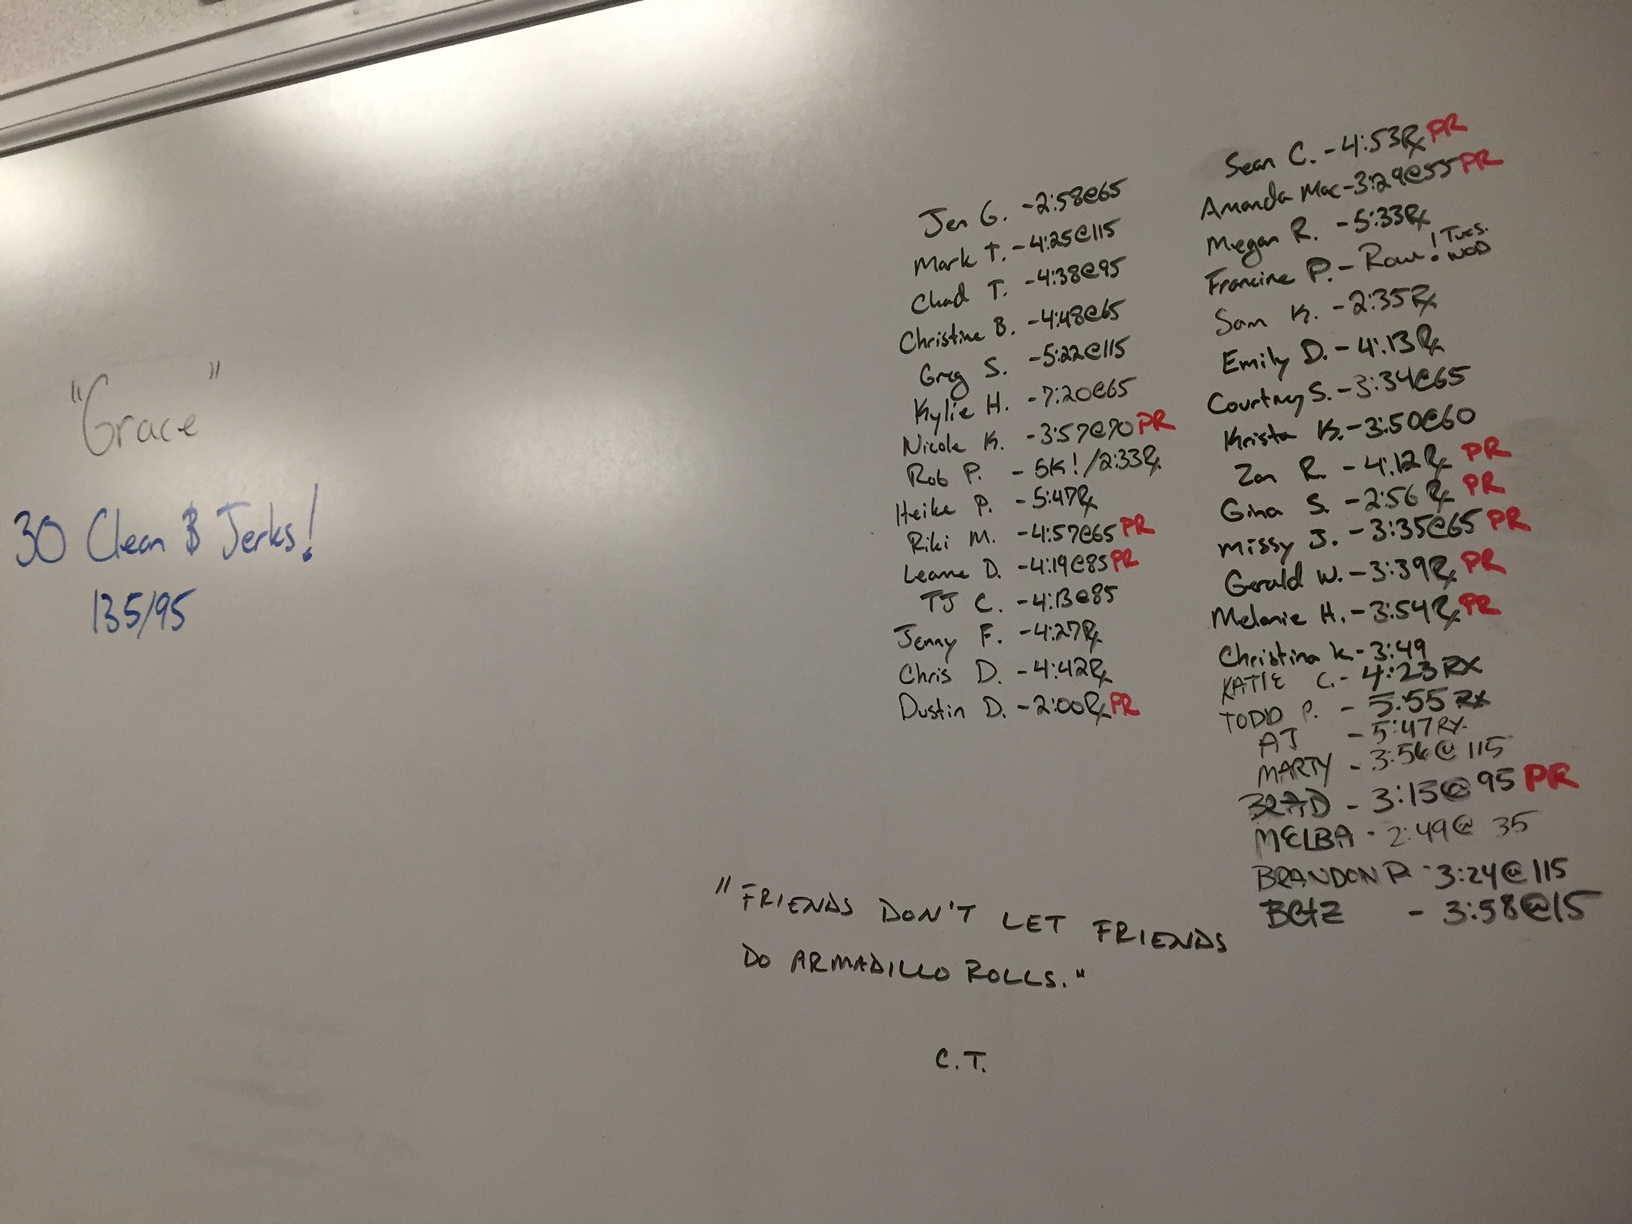 "Grace"
30 Clean & Jerks!
135/95
Jen G. - 2:58@65
Mark T. - 4:25@115
Chad T. - 4:38@95
Christine B. - 4:48@65
Greg S. - 5:22@115
Kylie H. - 7:20@65
Nicole K. - 3:57@70 PR
Rob P. - 5K! / 2:33Rx
Heike P. - 5:47Rx
Riki M. - 4:57@65 PR
Leanne D. - 4:19@85 PR
TJ C. - 4:13@85
Jenny F. - 4:27Rx
Chris D. - 4:42Rx
Dustin D. - 2:00Rx PR
Sean C. - 4:53Rx PR
Amanda Mac - 3:29@55 PR
Megan R. - 5:33Rx
Francine P. - Row! Tues. WOD
Sam K. - 2:35Rx
Emily D. - 4:13Rx
Courtney S. - 3:34@65
Krista K. - 3:50@60
Zan R. - 4:12Rx PR
Gina S. - 2:56Rx PR
Missy J. - 3:35@65 PR
Gerald W. - 3:39Rx PR
Melanie H. - 3:54Rx PR
Christina K - 3:49
KATIE C. - 4:23 RX
TODD P. - 5:55 RX
AJ - 5:47RX
MARTY - 3:56@115
BRAD - 3:15@95 PR
MELBA - 2:49@ 35
BRANDON P. - 3:24@115
- 3:58@15
"FRIENDS DON'T LET FRIENDS
DO ARMADILLO ROLLS."
C.T.